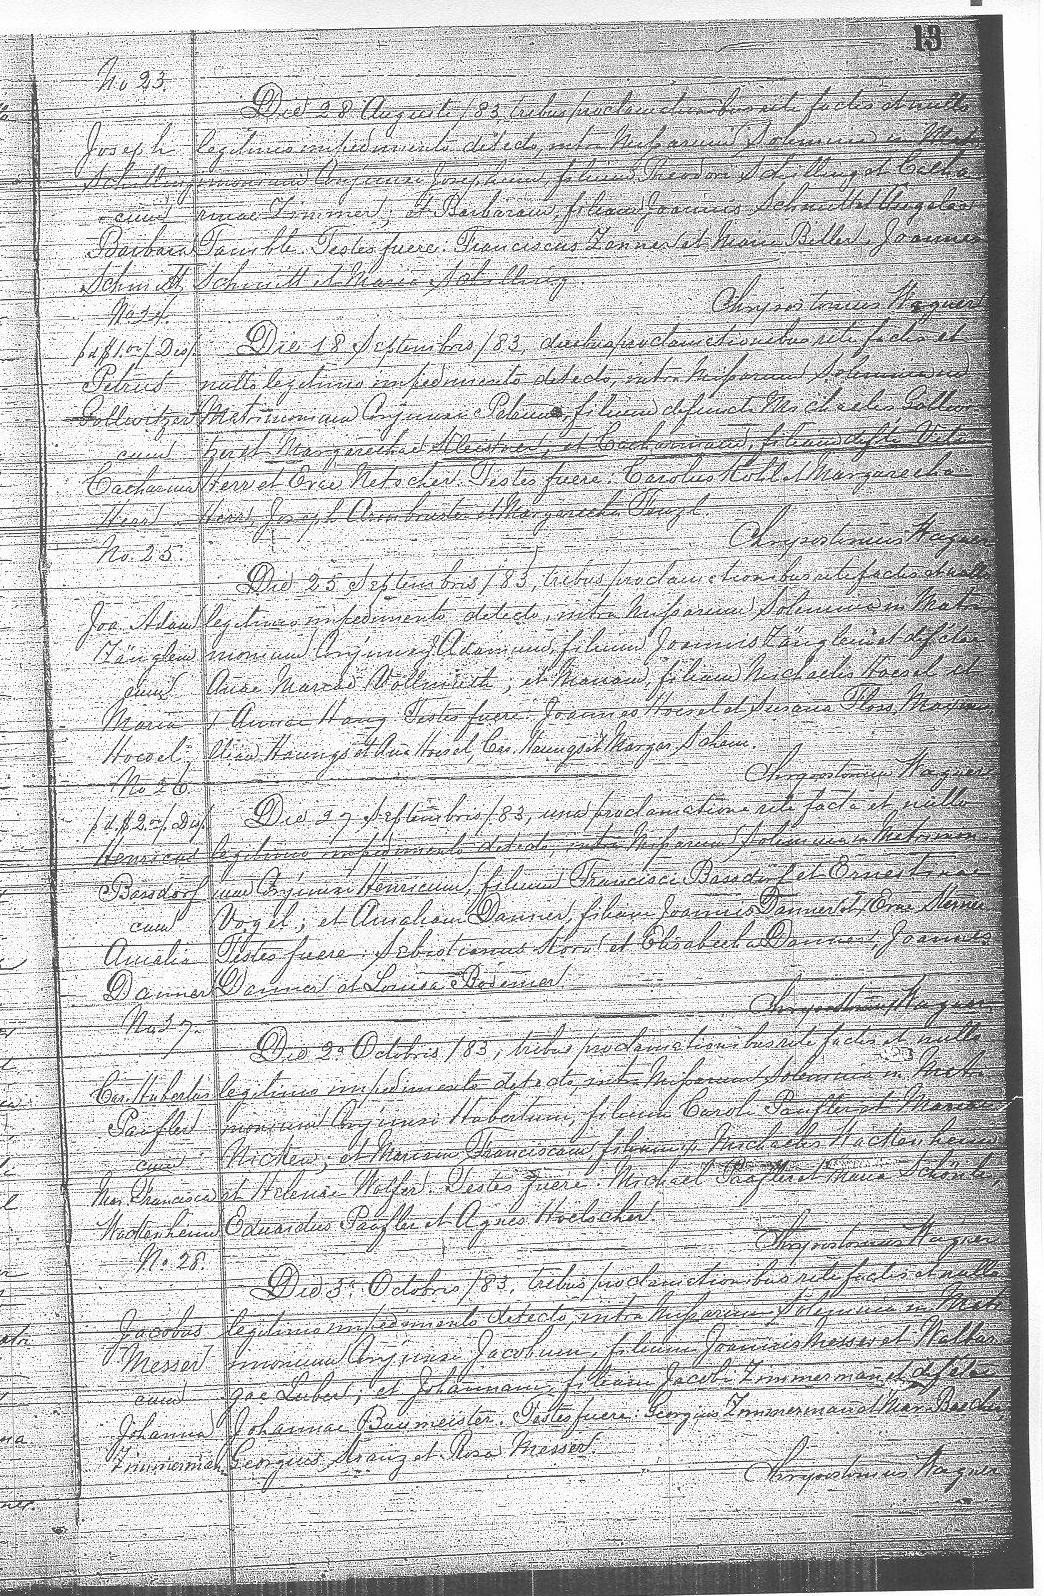 13
No 23.
Die 28 Augusti /83, tribus proclamationibus rite factis et nullo
Joseph legitimo impedimento detecto, intra Missarum Solemnia in Matri
Schilling monium Conjunxi Josephum, filium Theodori Schilling et Catha
cum rinae Zimmer; et Barbaram, filiam Joannis Schmitt et Angelae
Barbara Testes fuere: Franciscus Zenner et Maria Beller, Joannes
Schmitt, Schmitt et Maria Schilling.
Chrysostomus Wagner
No 24.
Die 18 Septembris /83, duabus proclamationibus rite factis et
Petrus nullo legitimo impedimento detecto, intra Missarum Solemnia in
Gollwitzer Matrimonium Conjunxi Petrum, filium defuncti Michaelis Gollwi
cum tzer et Margarethae Kleistner, et Catharinam, filiam dfti Viti
Catharina Herr et Evae Netscher. Testes fuere: Carolus Kohl et Margaretha
Herr. Herr, Joseph Armbruster et Margaretha Fenzl
Chrysostomus Wagner
No. 25.
Die 25 Septembris /83, tribus proclamationibus rite factis et nullo
Joa. Adam legitimo impedimento detecto, intra Missarum Solemnia in Matri
Zänglein monium Conjunxi Adamum, filium Joannis Zänglein et dfctae
cum Anae Mariae Vollmuth; et Mariam, filiam Michaelis Hoesel et
Maria Annae Haug. Testes fuere: Joannes Hoesel et Susana Floss, Maximi
Hoesel; lian Haungs et Ana Hoesel, Car. Haungs et Margar. Schem.
Chrysostomus Wagner
No 26.
Die 27 Septembris /83, una proclamatione rite facta et nullo
Henricus legitimo impedimento detecto, intra Missarum Solemnia in Matrimon
Bassdorf ium Conjunxi Henricum, filium Francisci Bassdorf et Ernestinae
cum Vogel; et Amaliam Danner, filiam Joannis Danner et Evae Sterner
Amalia Testes fuere: Sebastianus Korn et Elisabetha Danner, Joannes
Danner Danner et Louisa Bodemer.
Chrysostomus Wagner
No 27.
Die 2a Octobris /83, tribus proclamationibus rite factis et nullo
Car. Hubertus legitimo impedimento detecto, intra Missarum Solemnia in Matri
Paufler monium Conjunxi Hubertum, filium Caroli Paufler et Mariae
cum Nicken; et Mariam Franciscam filiam Michaelis Wackenheim
Mar. Francisca et Helenae Wolfer. Testes fuere: Michael Paufler et Maria Schönlo,
Wackenheim Eduardus Paufler et Agnes Hoelscher.
Chrysostomus Wagner
No. 28.
Die 3a Octobris /83, tribus proclamationibus rite factis et nullo
Jacobus legitimo impedimento detecto, intra Missarum Solemnia in Matri
Messer monium Conjunxi Jacobum, filium Joannis Messer et Walbur
cum gae Lubert; et Johannam, filiam Jacobi Zimmerman, et dfctae
Johanna Johannae Baumeister. Testes fuere: Georgius Zimmerman et Mar.
Zimmerman. Georgius Stranz et Rosa Messer.
Chrysostomus Wagner